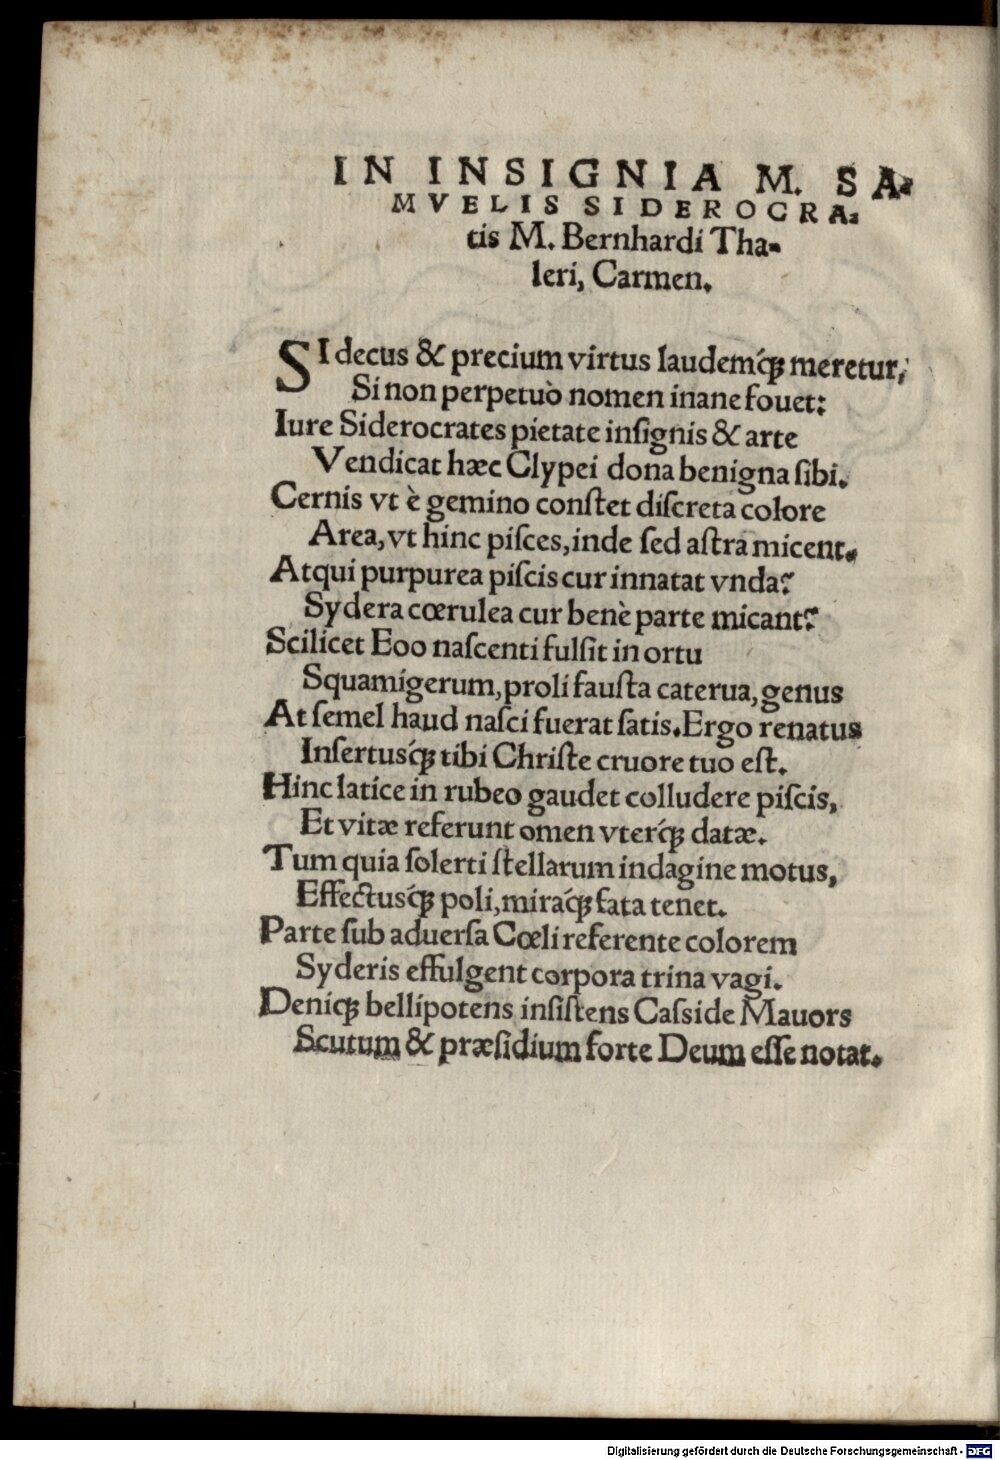 IN INSIGNIA M. SA-
MVELIS SIDEROCRA-
tis M. Bernhardi Tha-
leri, Carmen.
SI decus & precium virtus laudemq́; meretur,
Si non perpetuò nomen inane fouet:
Iure Siderocrates pietate insignis & arte
Vendicat hæc Clypei dona benigna sibi.
Cernis vt è gemino constet discreta colore
Area, vt hinc pisces, inde sed astra micent.
Atqui purpurea piscis cur innatat vnda?
Sydera cœrulea cur benè parte micant?
Scilicet Eoo nascenti fulsit in ortu
Squamigerum, proli fausta caterua, genus
At semel haud nasci fuerat satis. Ergo renatus
Insertusq́; tibi Christe cruore tuo est.
Hinc latice in rubeo gaudet colludere piscis,
Et vitæ referunt omen vterq́; datæ.
Tum quia solerti stellarum indagine motus,
Effectusq́; poli, miraq́; fata tenet.
Parte sub aduersa Cœli referente colorem
Syderis effulgent corpora trina vagi.
Deniq; bellipotens insistens Casside Mauors
Scutum & præsidium forte Deum esse notat.
Digitalisierung gefördert durch die Deutsche Forschungsgemeinschaft - DFG